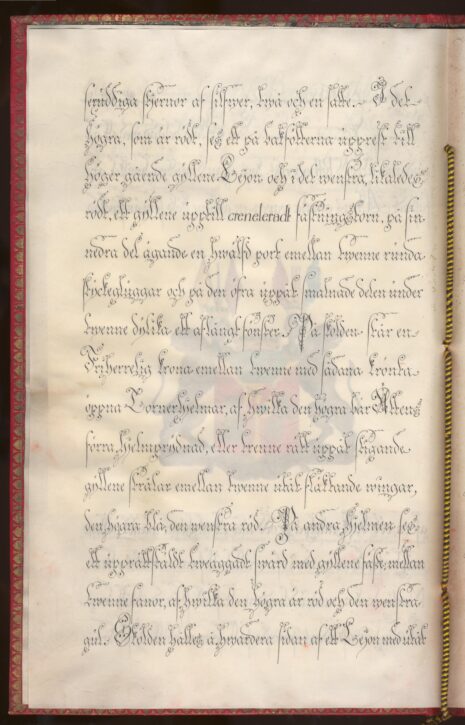 sexuddiga stjernor af silfwer, twå och en satte. I det
högra, som är rödt, ses ett på bakfötterna upprest till
höger gående gyllene Lejon och i det wenstra, likaledes
rödt, ett gyllene upptill creneleradt fästningstorn, på sin
nedra del ägande en hwälfd port emellan twenne runda
styckegluggar och på den öfra uppåt smalnade delen under
twenne dylika ett aflångt fönster. På skölden står en
Friherrelig krona emellan twenne med sådana krönta
öppna Tornerhjelmar, af hwilka den högra bär Ättens
förra hjelmprydnad, eller trenne rätt uppåt stigande
gyllene strålar emellan twenne utåt fläktande wingar,
den högra blå, den wenstra röd. På andra hjelmen ses
ett upprättstäldt tweäggadt swärd med gyllene fäste, mellan
twenne fanor, af hwilka den högra är röd och den wenstra
gul. Skölden hålles å hwardera sidan af ett Lejon med utåt